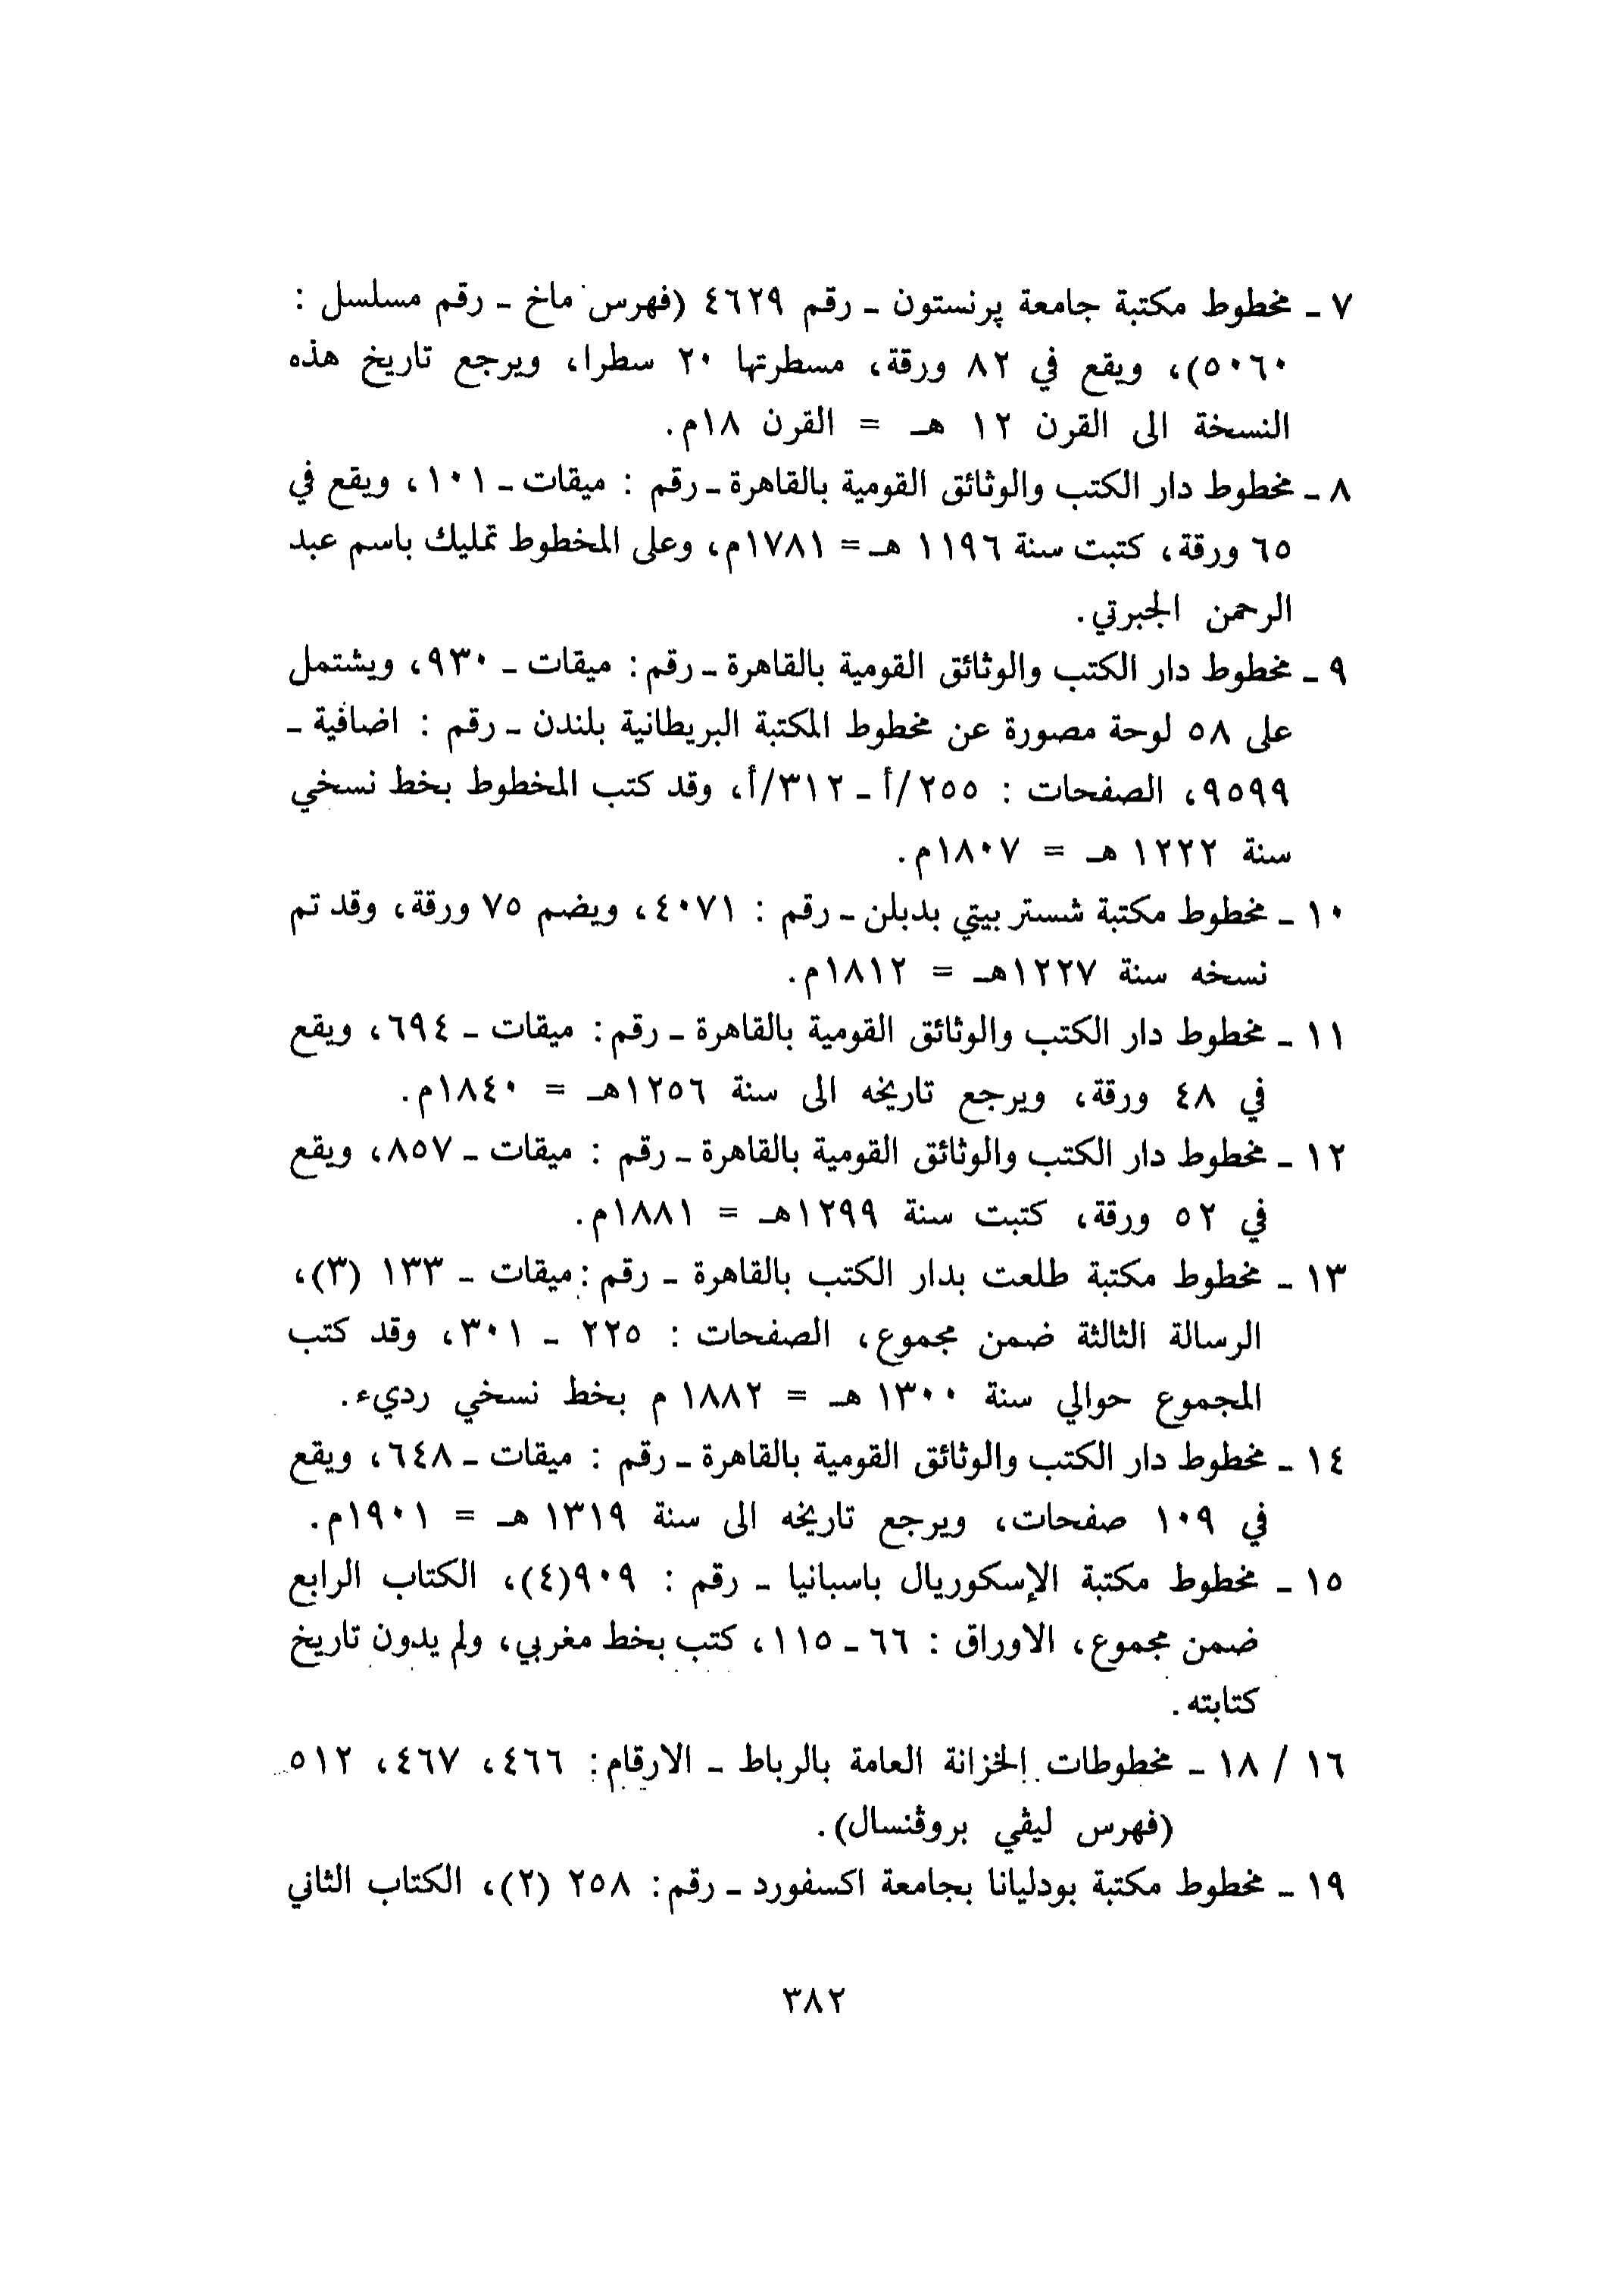 ٧ ـ مخطوط مكتبة جامعة پرنستون ـ رقم ٤٦٢٩ (فهرس ماخ ـ رقم مسلسل :
٥٠٦٠)، ويقع في ٨٢ ورقة، مسطرتها ٢٠ سطرا، ويرجع تاريخ هذه
النسخة الى القرن ١٢ هـ = القرن ١٨م.
٨ ـ مخطوط دار الكتب والوثائق القومية بالقاهرة ـ رقم : ميقات ـ ١٠١، ويقع في
٦٥ ورقة، كتبت سنة ١١٩٦ هـ = ١٧٨١م، وعلى المخطوط تمليك باسم عبد
الرحمن الجبرتي.
٩ ـ مخطوط دار الكتب والوثائق القومية بالقاهرة ـ رقم: ميقات ـ ٩٣٠، ويشتمل
على ٥٨ لوحة مصورة عن مخطوط المكتبة البريطانية بلندن ـ رقم : اضافية ـ
٩٥٩٩، الصفحات : ٢٥٥/أ ـ ٣١٢/أ، وقد كتب المخطوط بخط نسخي
سنة ١٢٢٢ هـ = ١٨٠٧م.
١٠ ـ مخطوط مكتبة شستر بيتي بدبلن ـ رقم : ٤٠٧١، ويضم ٧٥ ورقة، وقد تم
نسخه سنة ١٢٢٧هـ = ١٨١٢م.
١١ ـ مخطوط دار الكتب والوثائق القومية بالقاهرة ـ رقم: ميقات ـ ٦٩٤، ويقع
في ٤٨ ورقة، ويرجع تاريخه الى سنة ١٢٥٦هـ = ١٨٤٠م.
١٢ ـ مخطوط دار الكتب والوثائق القومية بالقاهرة ـ رقم : ميقات ـ ٨٥٧، ويقع
في ٥٢ ورقة، كتبت سنة ١٢٩٩هـ = ١٨٨١م.
١٣ ـ مخطوط مكتبة طلعت بدار الكتب بالقاهرة ـ رقم: ميقات ـ ١٣٣ (٣)،
الرسالة الثالثة ضمن مجموع، الصفحات : ٢٢٥ ـ ٣٠١، وقد كتب
المجموع حوالي سنة ١٣٠٠ هـ = ١٨٨٢ م بخط نسخي رديء.
١٤ ـ مخطوط دار الكتب والوثائق القومية بالقاهرة ـ رقم : ميقات ـ ٦٤٨، ويقع
في ١٠٩ صفحات، ويرجع تاريخه الى سنة ١٣١٩ هـ = ١٩٠١م.
١٥ ـ مخطوط مكتبة الإسكوريال باسبانيا ـ رقم : ٩٠٩(٤)، الكتاب الرابع
ضمن مجموع، الاوراق : ٦٦ ـ ١١٥، كتب بخط مغربي، ولم يدون تاريخ
كتابته.
١٦ / ١٨ ـ مخطوطات الخزانة العامة بالرباط ـ الارقام: ٤٦٦، ٤٦٧، ٥١٢
(فهرس ليڤي بروڤنسال).
١٩ ـ مخطوط مكتبة بودليانا بجامعة اكسفورد ـ رقم: ٢٥٨ (٢)، الكتاب الثاني
٣٨٢